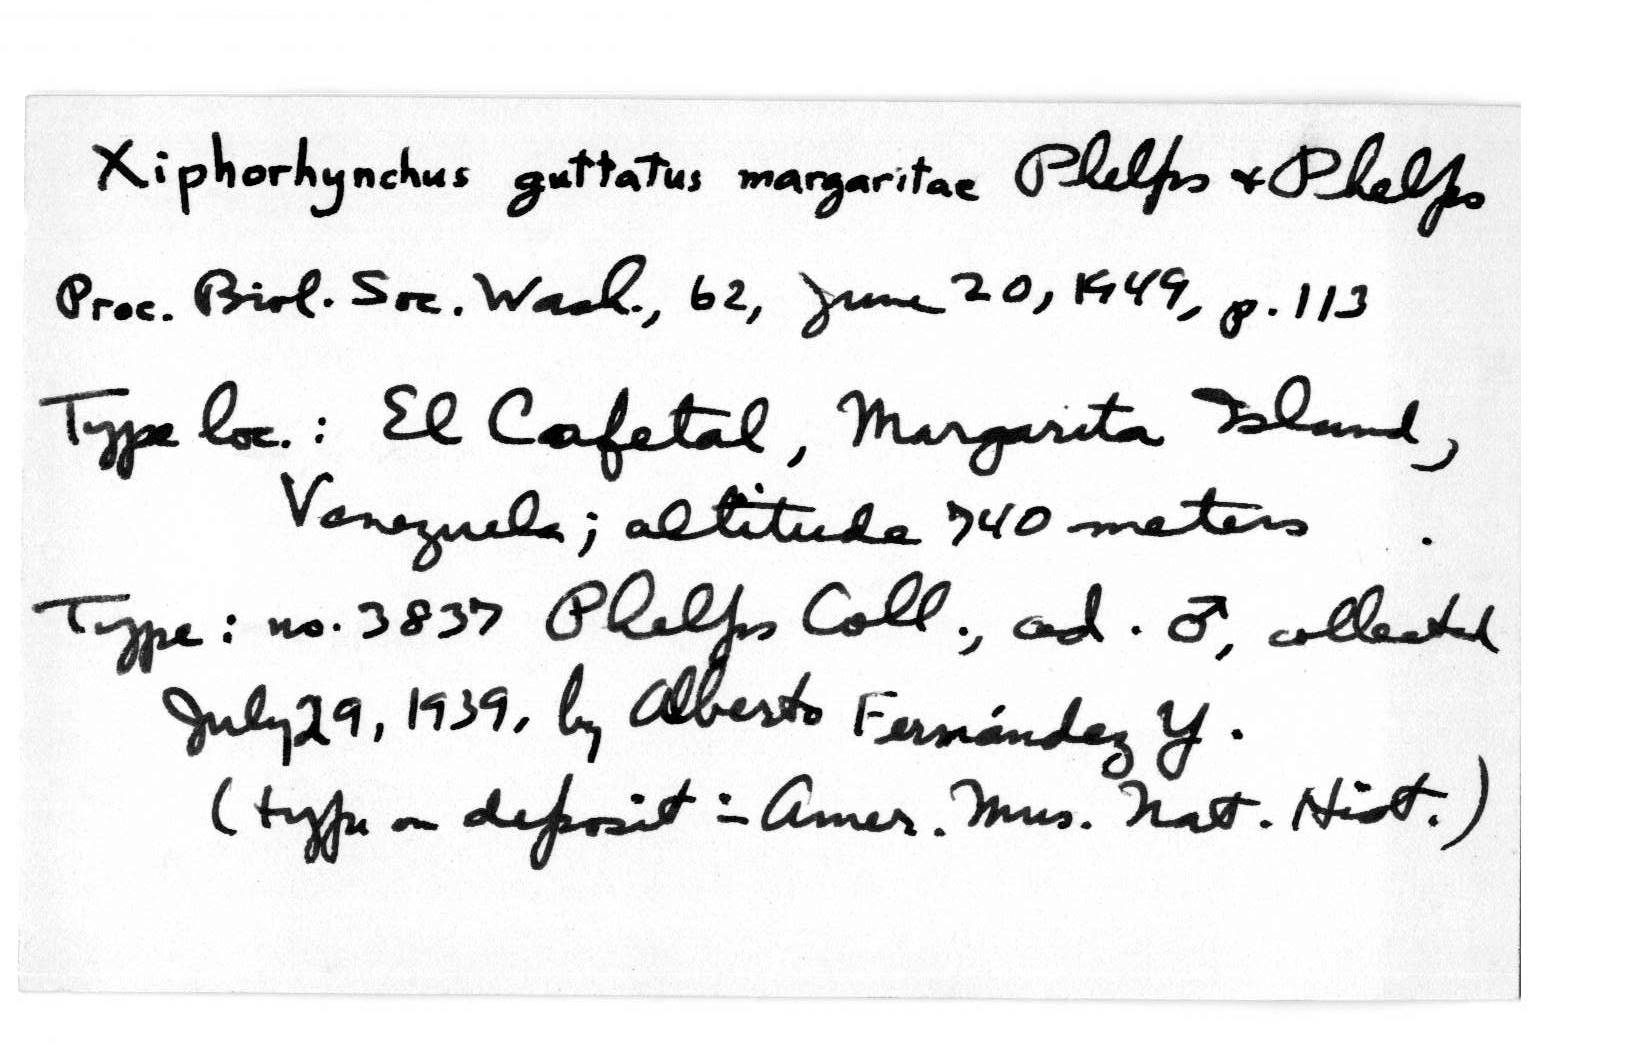 Xiphorhynchus guttatus margaritae Phelps & Phelps
Proc. Biol. Soc. Wash., 62, June 20, 1949, p. 113
Type loc.: El Cafetal, Margarita Island,
Venezuela; altitude 740 meters
Type: no. 3837 Phelps Coll., ad. ♂, collected
July 29, 1939, by Alberto Fernández Y.
(type on deposit in Amer. Mus. Nat. Hist.)